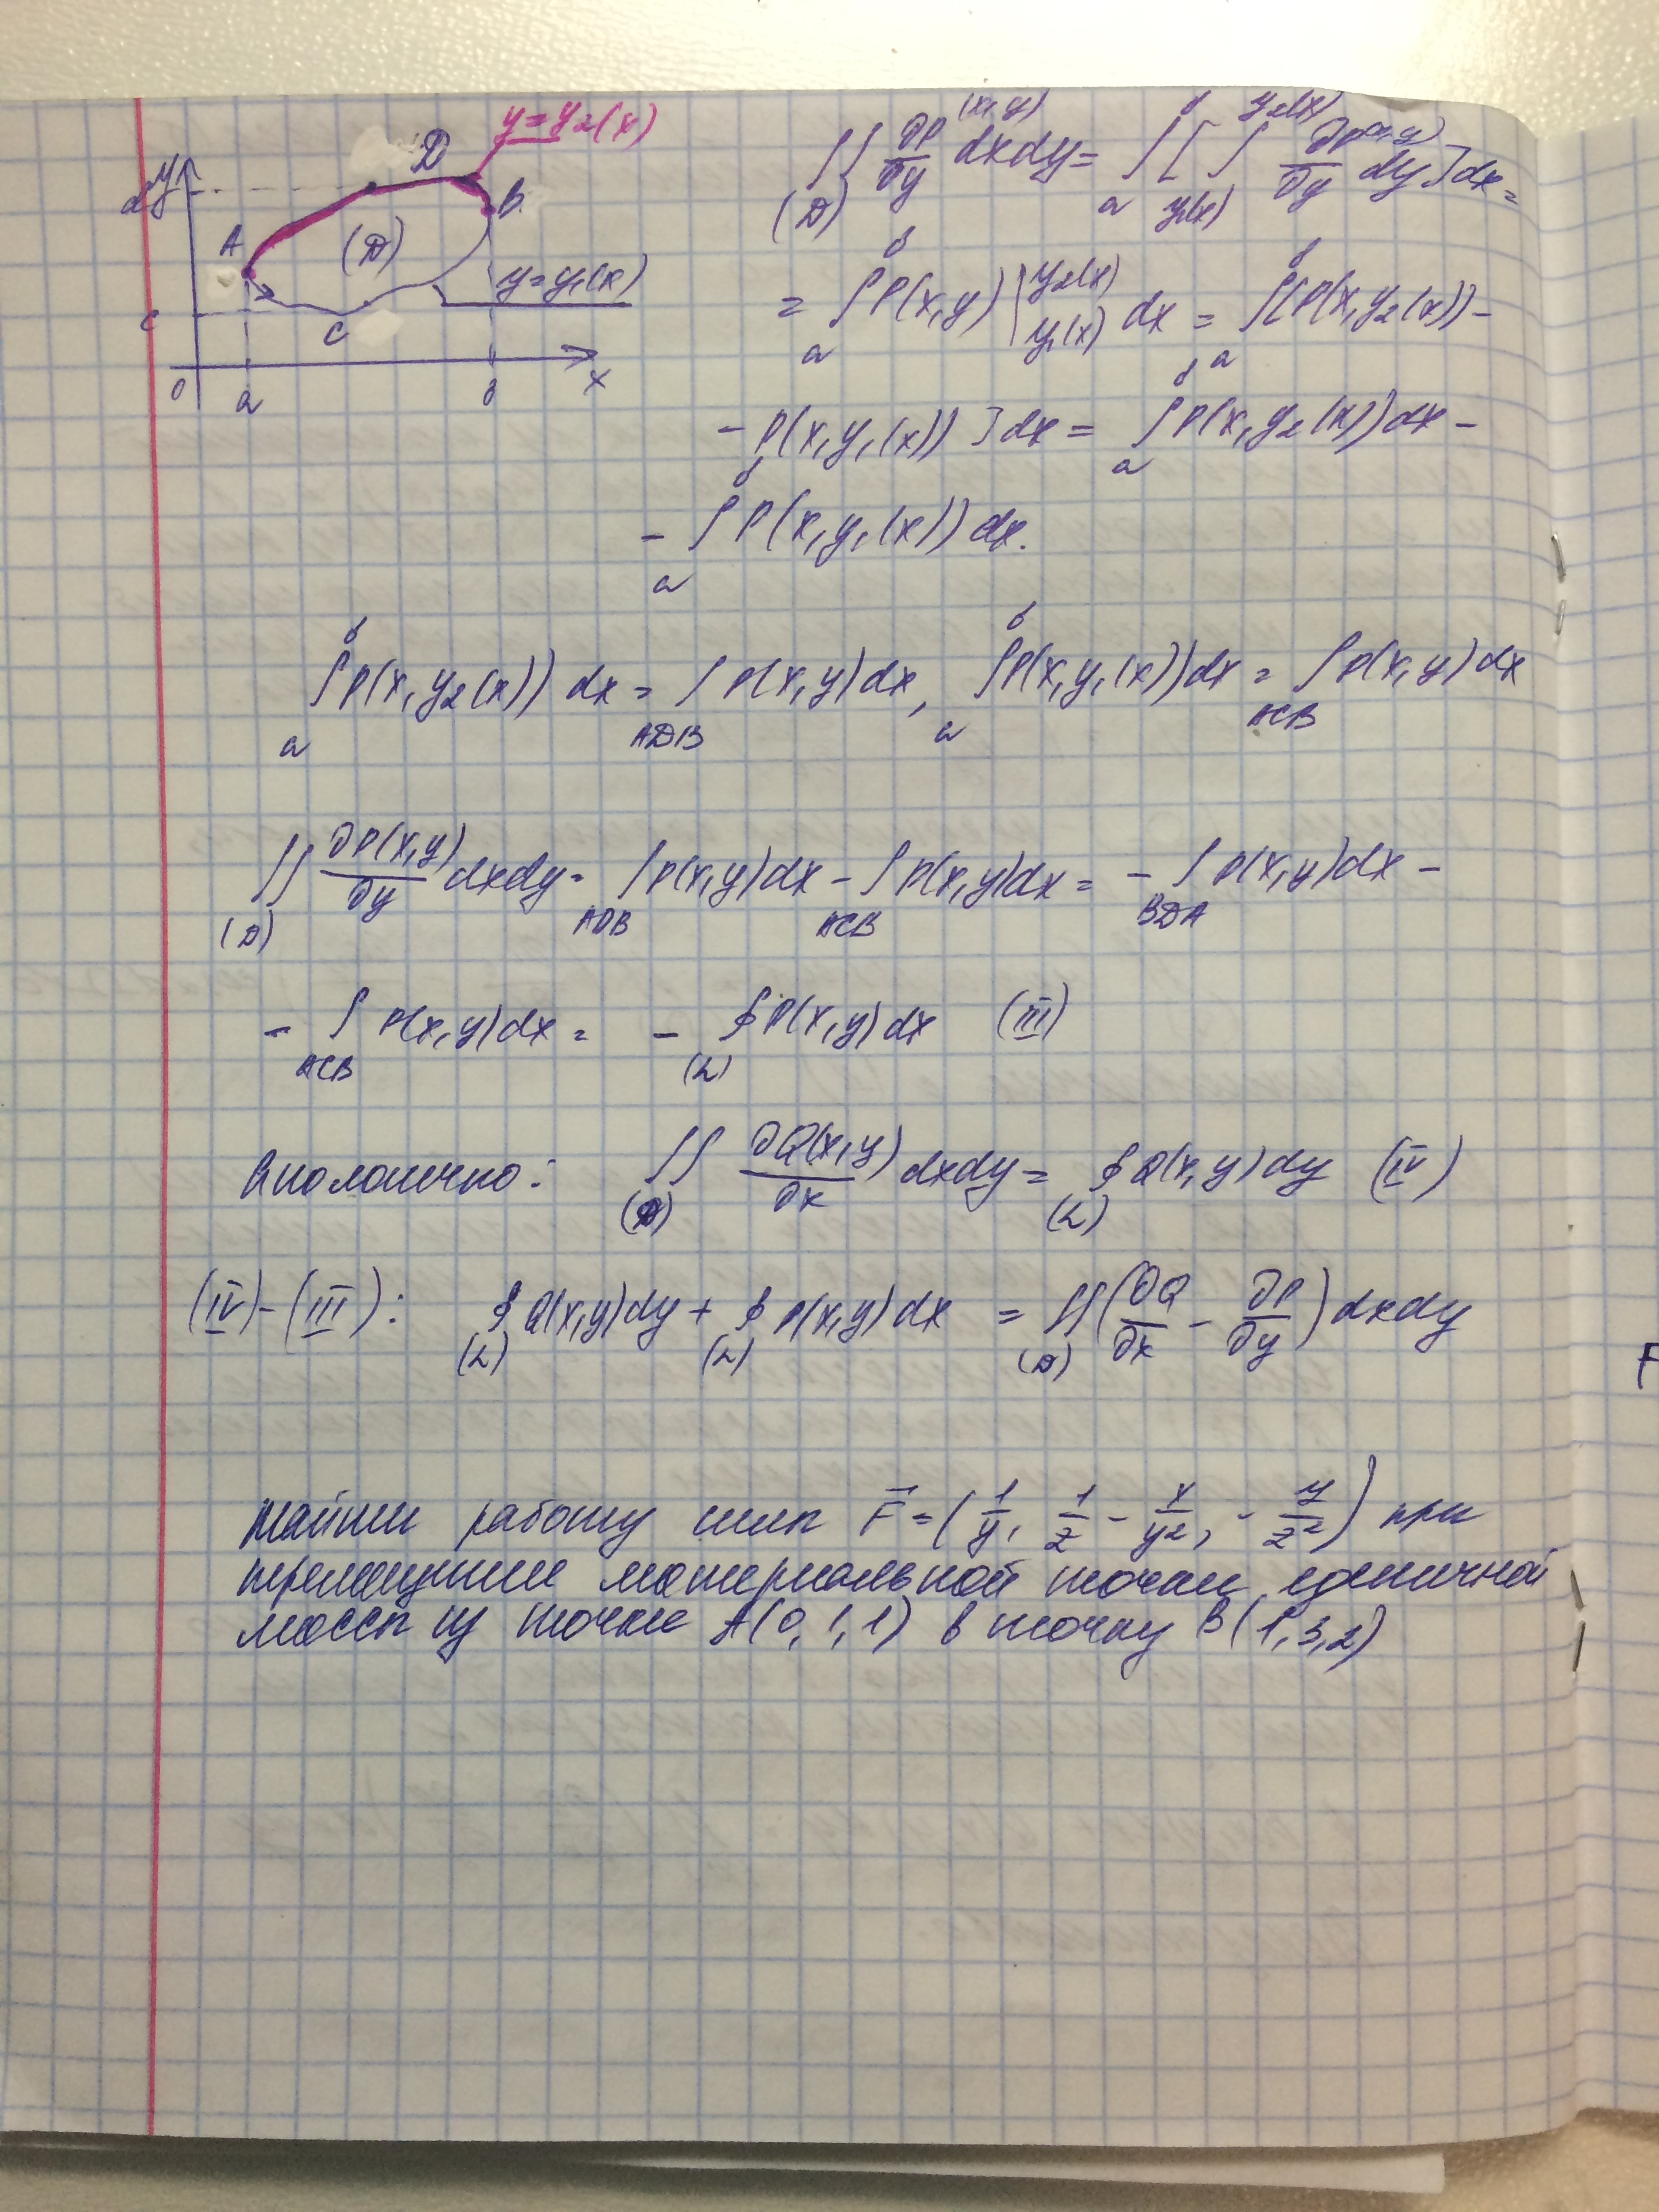 y = y₂(x)
y
d
D
B
A
(D)
y = y₁(x)
c
C
0
a
b
x
∬_(D) ∂P/∂y (x,y) dxdy = ∫_a^b [ ∫_{y₁(x)}^{y₂(x)} ∂P(x,y)/∂y dy ] dx =
= ∫_a^b P(x,y) |_{y₁(x)}^{y₂(x)} dx = ∫_a^b [P(x,y₂(x)) –
– P(x,y₁(x)) ] dx = ∫_a^b P(x,y₂(x)) dx –
– ∫_a^b P(x,y₁(x)) dx.
∫_a^b P(x,y₂(x)) dx = ∫_{ADB} P(x,y) dx, ∫_a^b P(x,y₁(x)) dx = ∫_{ACB} P(x,y) dx
∬_(D) ∂P(x,y)/∂y dxdy = ∫_{ADB} P(x,y) dx – ∫_{ACB} P(x,y) dx = – ∫_{BDA} P(x,y) dx –
– ∫_{ACB} P(x,y) dx = – ∮_(L) P(x,y) dx (III)
Аналогично: ∬_(D) ∂Q(x,y)/∂x dxdy = ∮_(L) Q(x,y) dy (IV)
(IV) – (III): ∮_(L) Q(x,y) dy + ∮_(L) P(x,y) dx = ∬_(D) (∂Q/∂x – ∂P/∂y) dxdy
F
Найти работу силы F⃗ = (1/y, 1/z – x/y², – y/z²) при
перемещении материальной точки единичной
массы из точки A(0,1,1) в точку B(1,3,2)